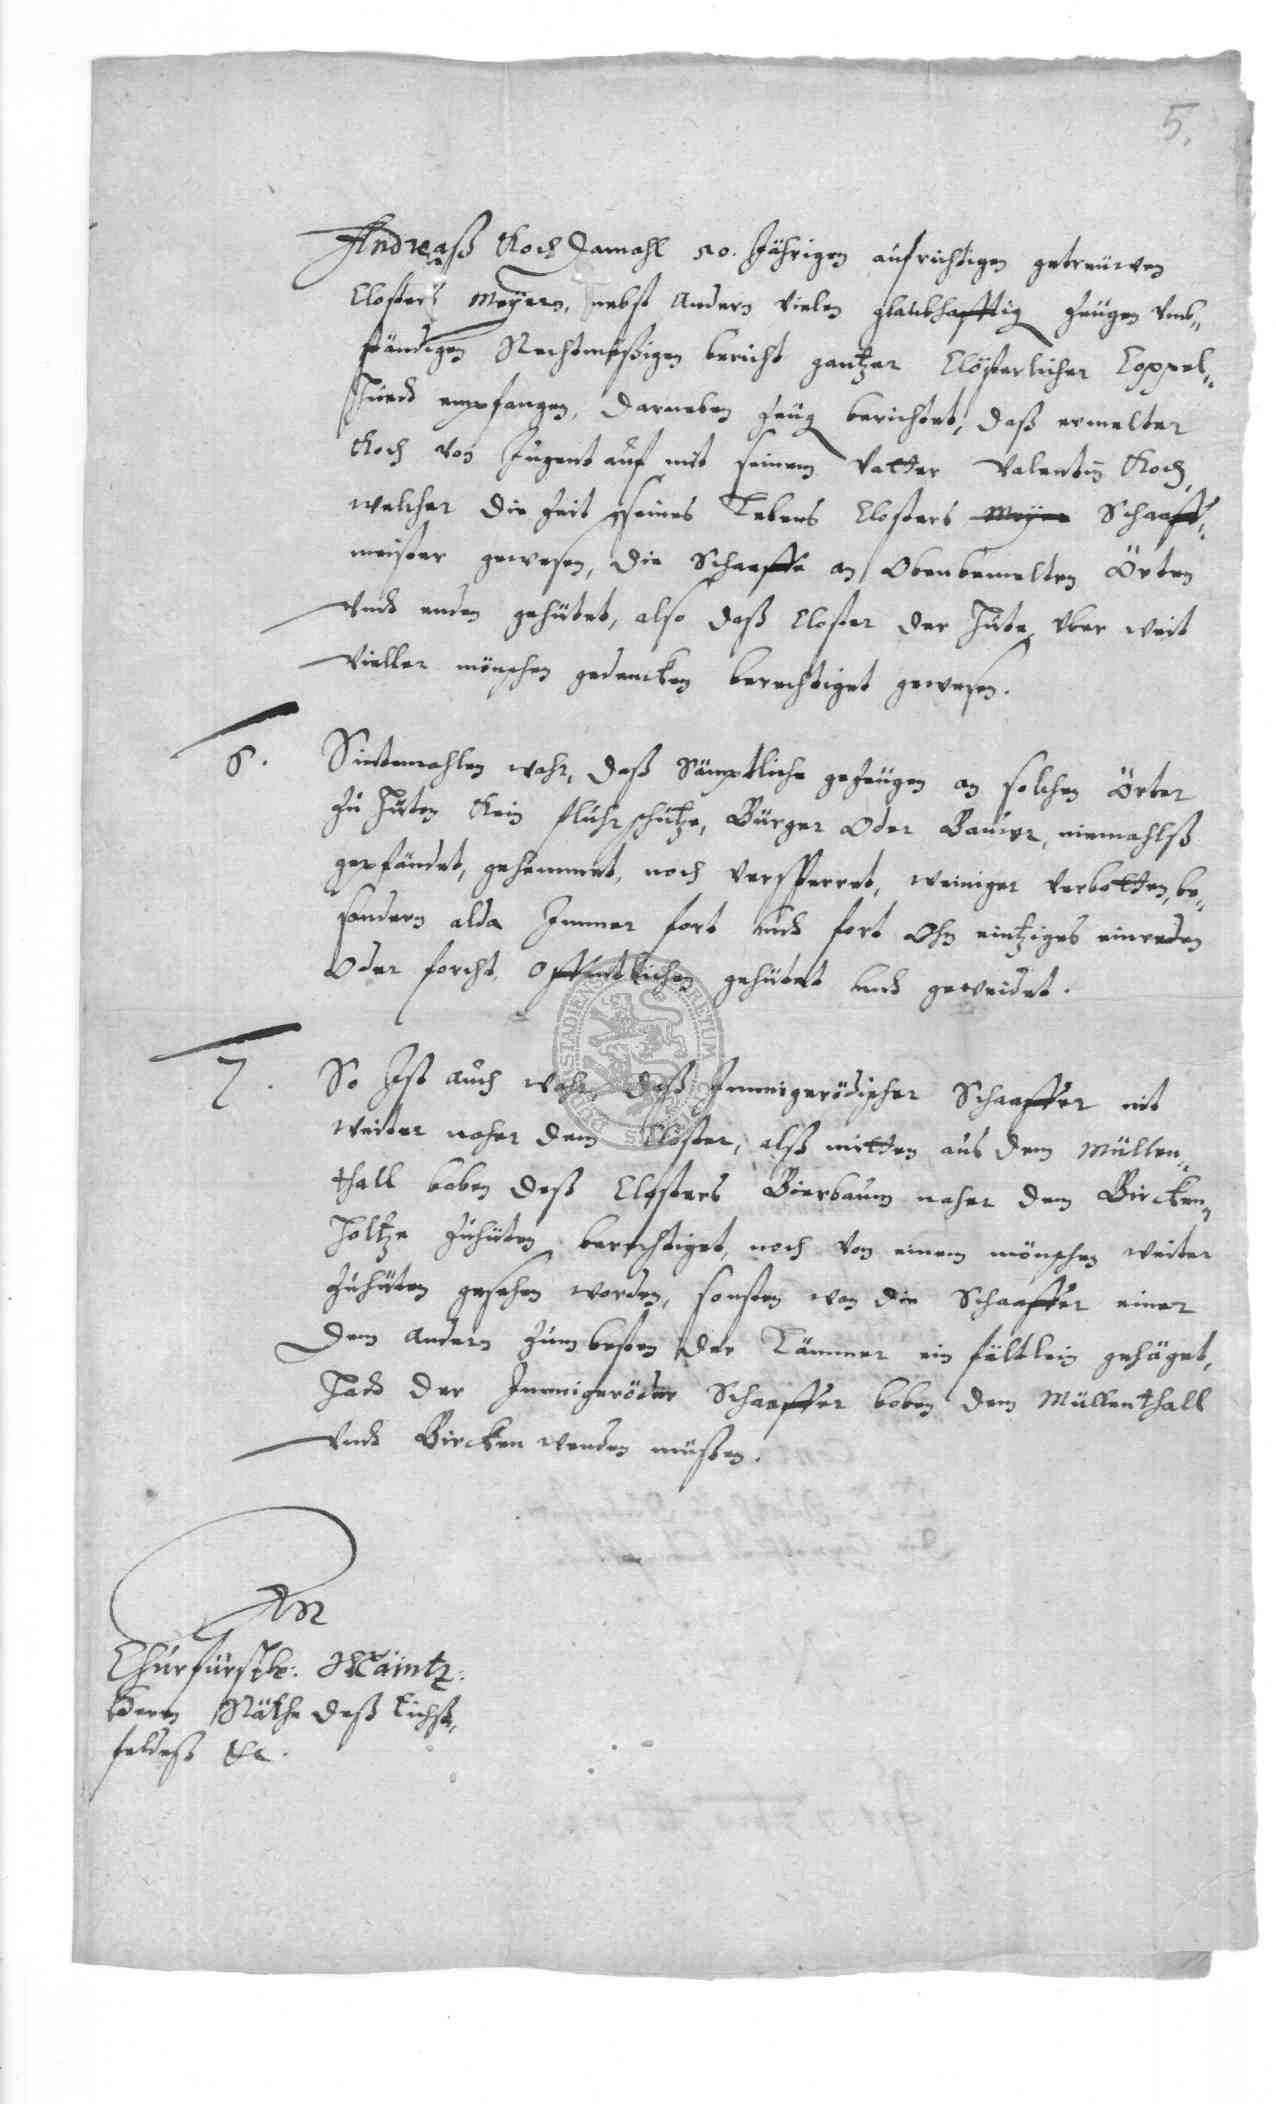 5.
Andreaß Koch Damahl 50. Jährigen aufrichtigen getreuwen
Closters Meyern, nebst andern vielen glaubhafftig zeugen vmb„
ständigen Rechtmeßigen bericht gantzer Clösterlicher Coppel„
Huedt empfangen, darneben zeug berichtet, daß ermelter
Koch von Jugent auf mit seinem Vatter Valentin Koch,
welcher die Zeit seines Lebens Closters Meyer Schaaff„
meister gewesen, die Schaaffe an Obenbemelten Örten
Vnd enden gehütet, also daß Closter der Hute vber weit
Vieller mönschen gedencken berechtiget gewesen.
6. Sintemahlen wahr, daß Sämptliche gezeugen an solchen Örter
zu Hüten kein fluhrschütze, Bürger oder Bauwr, niemahlß
gepfändet, gehemmet, noch versperret, weiniger verbotten, be„
sondern alda Immer fort und fort Ohn eintziges einreden
Oder forcht, offentlichen gehütet und geweidet.
7. So Ist auch wahr daß Immigerödischer Schaaffer nit
weiter naher dem Closter, alß mitten aus dem Müllen„
thall boben deß Closters Bierbaum naher dem Bircken„
Holtze zuhüten berechtiget, noch von einem mönschen weiter
zuhüten gesehen worden, sonsten wan die Schaaffer einer
Dem andern zum besten der Lämmer ein fältlein gehäget,
Hadt der Immigeröder Schaaffer boben dem Müllenthall
Vnd Bircken wenden müßen.
An
Churfürstl: Mäintz:
Herrn Räthe deß Eichß„
feldeß &c.